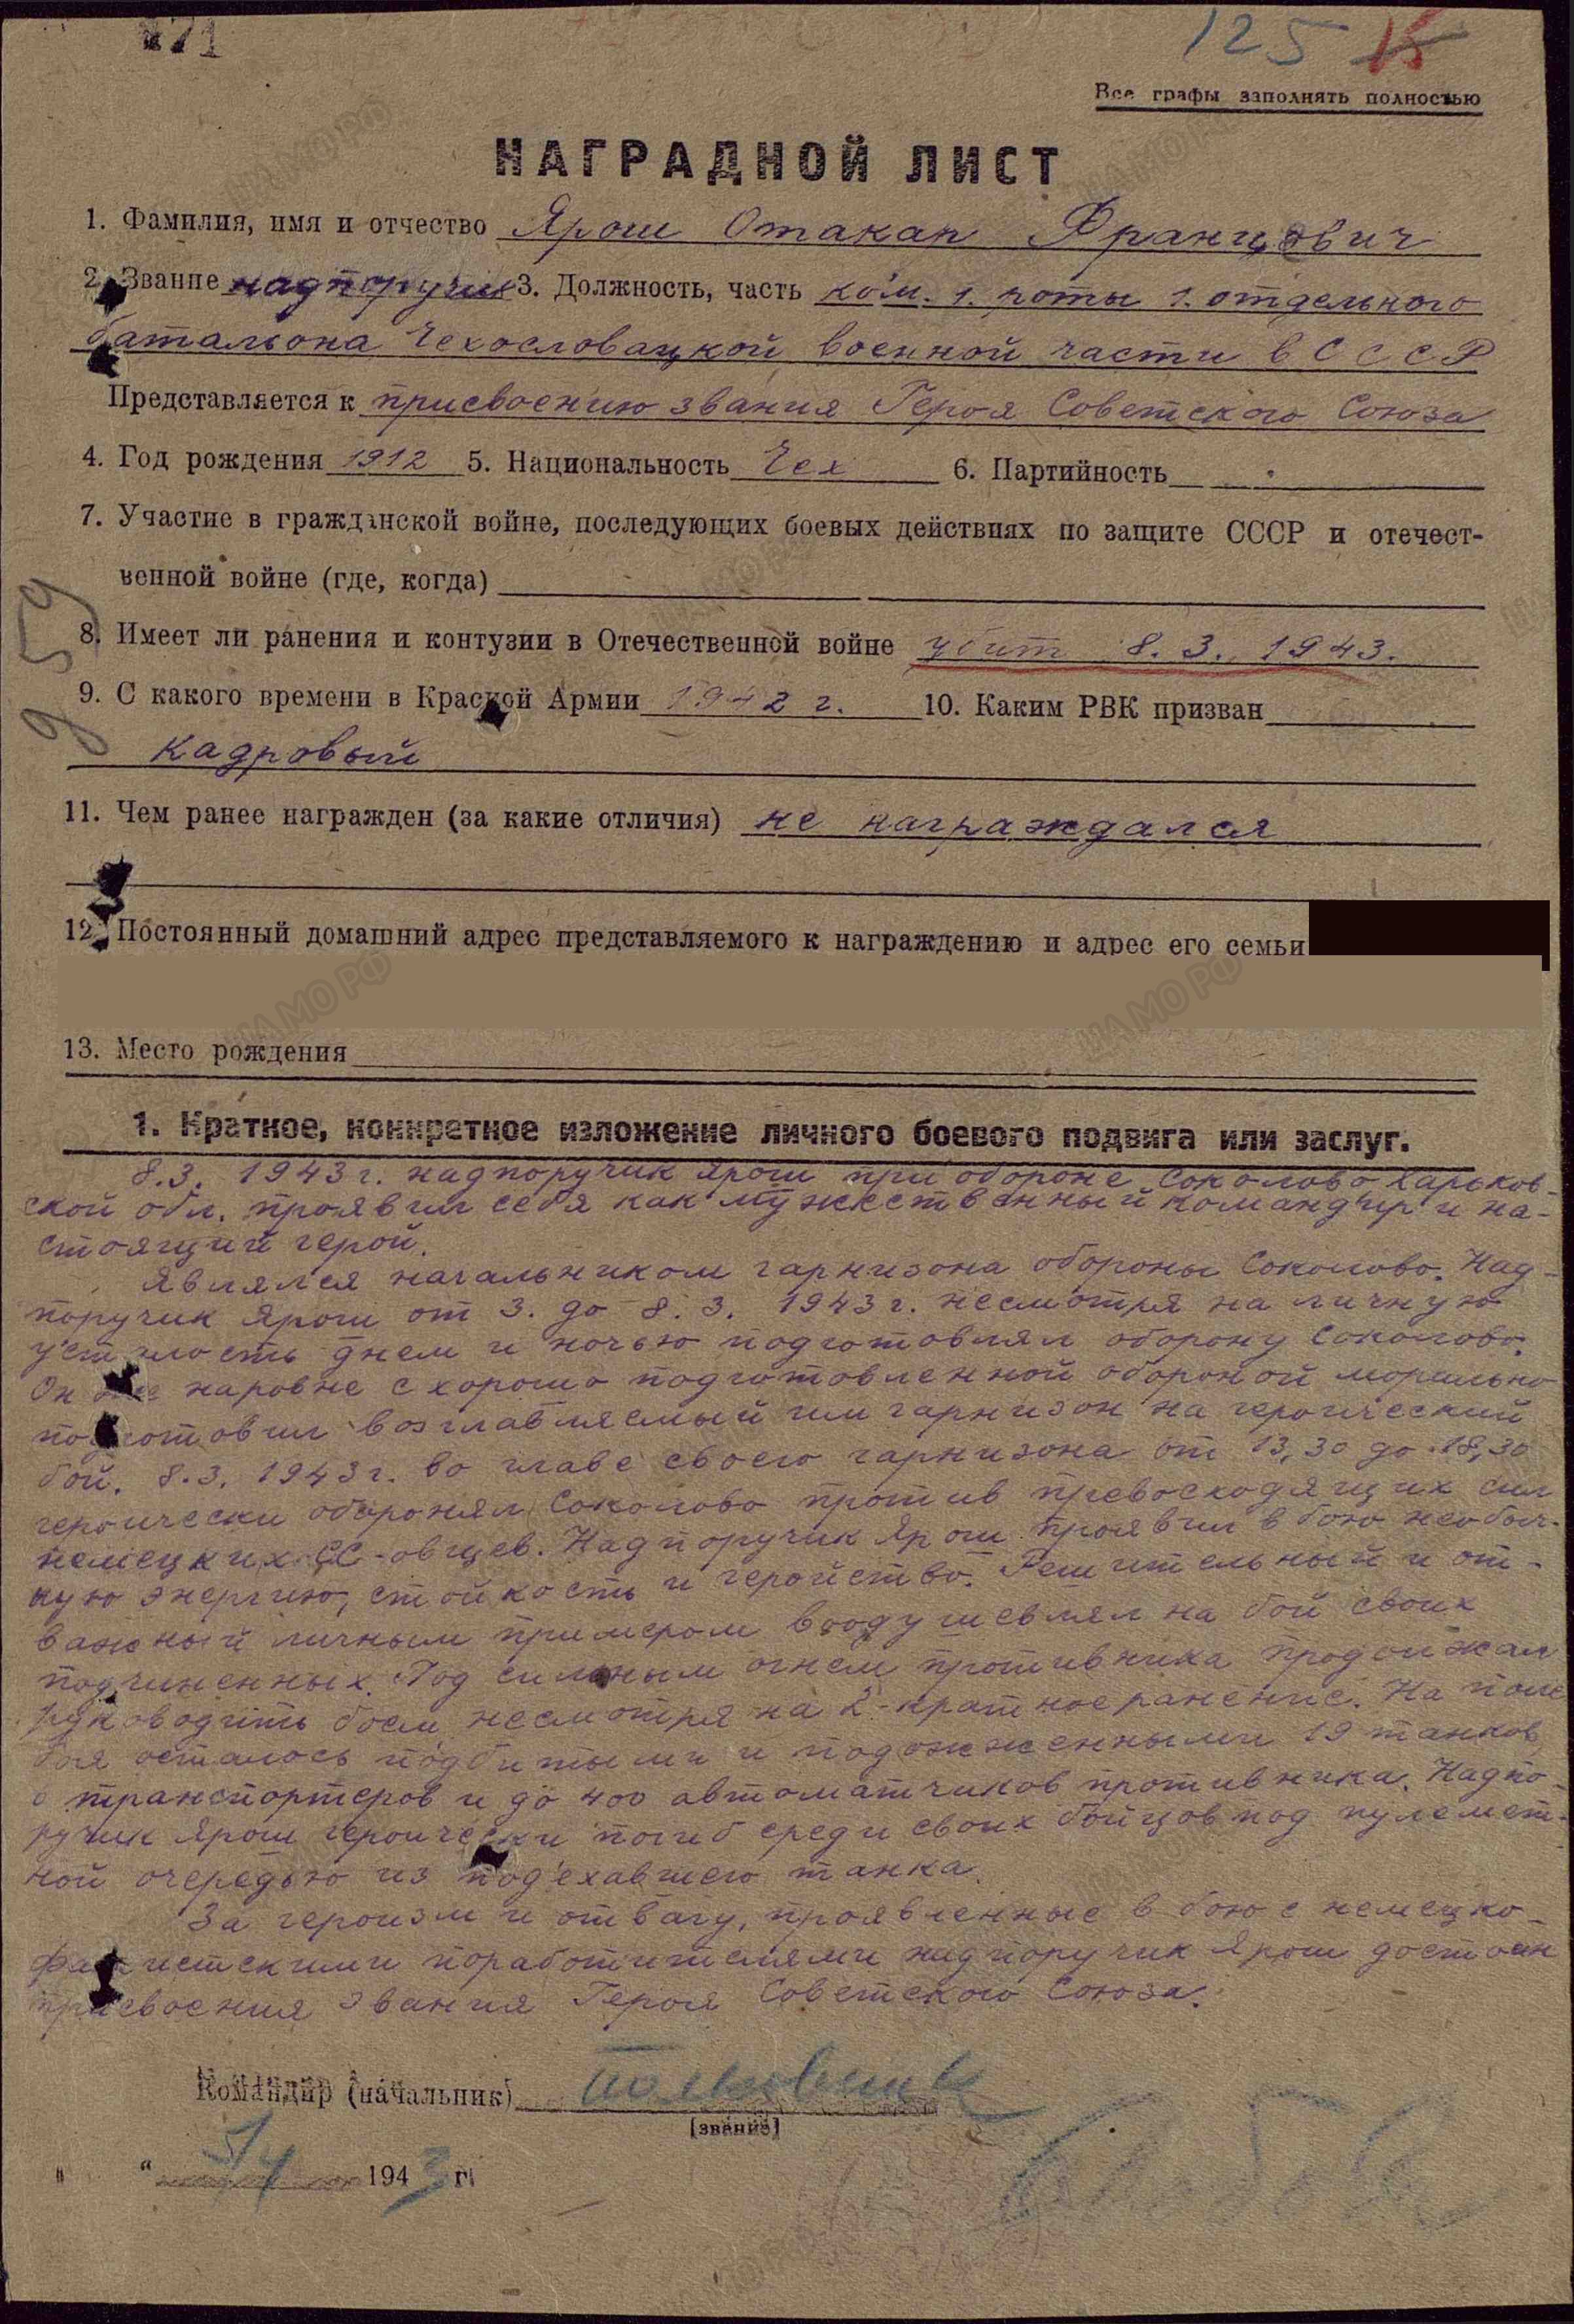 71
125 15
Все графы заполнять полностью
НАГРАДНОЙ ЛИСТ
1. Фамилия, имя и отчество Ярош Отакар Францович
2. Звание надпоручик 3. Должность, часть ком. 1. роты 1. отдельного
батальона Чехословацкой военной части в СССР
Представляется к присвоению звания Героя Советского Союза
4. Год рождения 1912 5. Национальность Чех 6. Партийность
7. Участие в гражданской войне, последующих боевых действиях по защите СССР и отечест-
венной войне (где, когда)
8. Имеет ли ранения и контузии в Отечественной войне убит 8. 3. 1943.
9. С какого времени в Красной Армии 1942 г. 10. Каким РВК призван
кадровый
11. Чем ранее награжден (за какие отличия) не награждался
12. Постоянный домашний адрес представляемого к награждению и адрес его семьи
13. Место рождения
1. Краткое, конкретное изложение личного боевого подвига или заслуг.
8.3. 1943 г. надпоручик Ярош при обороне Соколово Харьков-
ской обл. проявил себя как мужественный командир и на-
стоящий герой.
Являлся начальником гарнизона обороны Соколово. Над-
поручик Ярош от 3. до 8. 3. 1943 г. несмотря на личную
усталость днем и ночью подготовлял оборону Соколово.
Он наровне с хорошо подготовленной обороной морально
подготовил возглавляемый им гарнизон на героический
бой. 8.3. 1943 г. во главе своего гарнизона от 13,30 до 18,30
героически оборонял Соколово против превосходящих сил
немецких СС-овцев. Надпоручик Ярош проявил в бою необыч-
ную энергию, стойкость и геройство. Решительный и от-
важный личным примером воодушевлял на бой своих
подчиненных. Под сильным огнем противника продолжал
руководить боем несмотря на 2-кратное ранение. На поле
боя осталось подбитыми и подожженными 19 танков,
6 транспортеров и до 400 автоматчиков противника. Надпо-
ручик Ярош героически погиб среди своих бойцов под пулемет-
ной очередью из под'ехавшего танка.
За героизм и отвагу, проявленные в бою с немецко-
фашистскими поработителями надпоручик Ярош достоин
присвоения звания Героя Советского Союза.
Командир (начальник) полковник
(звание)
" " 5/4 1943 г.
Свобода
959
ЦАМО РФ
ЦАМО РФ
ЦАМО РФ
ЦАМО РФ